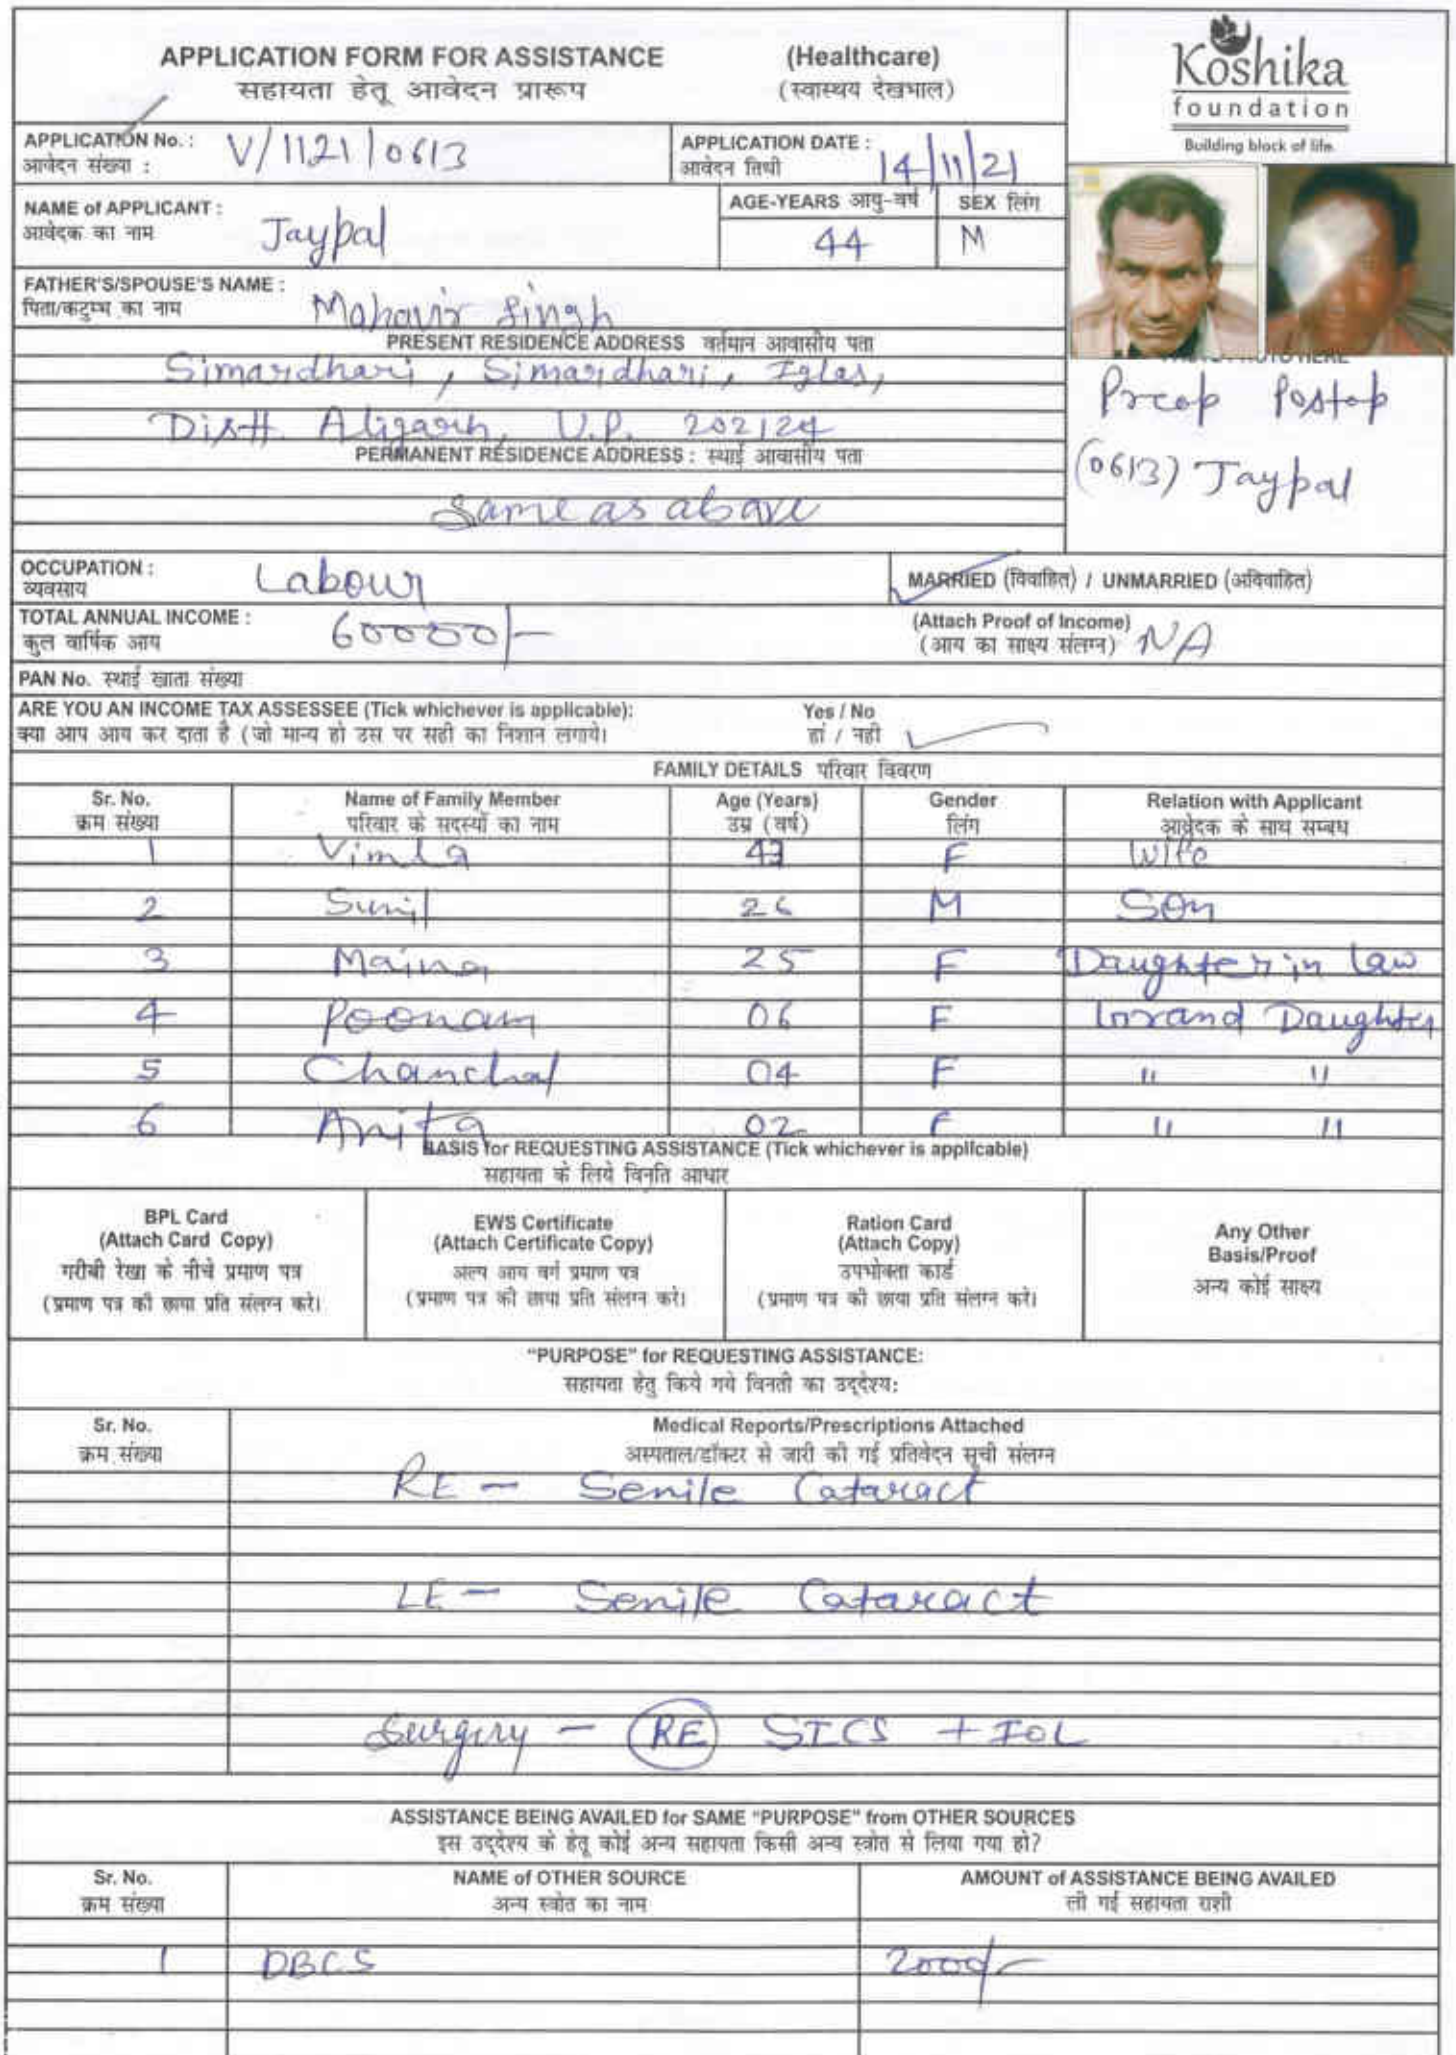 APPLICATION FORM FOR ASSISTANCE (Healthcare)
सहायता हेतू आवेदन प्रारूप (स्वास्थय देखभाल)
Koshika
foundation
Building block of life.
APPLICATION No. : V/1121/0613
आवेदन संख्या :
APPLICATION DATE : 14/11/21
आवेदन तिथी
NAME of APPLICANT : Jaypal
आवेदक का नाम
AGE-YEARS आयु-वर्ष SEX लिंग
44 M
FATHER'S/SPOUSE'S NAME : Mahavir Singh
पिता/कटुम्भ का नाम
PRESENT RESIDENCE ADDRESS वर्तमान आवासीय पता
Simardhari, Simardhari, Iglas,
Distt. Aligarh, U.P. 202124
PERMANENT RESIDENCE ADDRESS : स्थाई आवासीय पता
Same as above
Preop Postop
(0613) Jaypal
OCCUPATION : Labour
व्यवसाय
MARRIED (विवाहित) / UNMARRIED (अविवाहित)
TOTAL ANNUAL INCOME : 60000/-
कुल वार्षिक आय
(Attach Proof of Income) NA
(आय का साक्ष्य संलग्न)
PAN No. स्थाई खाता संख्या
ARE YOU AN INCOME TAX ASSESSEE (Tick whichever is applicable): Yes / No
क्या आप आय कर दाता है (जो मान्य हो उस पर सही का निशान लगाये। हां / नही
FAMILY DETAILS परिवार विवरण
Sr. No. Name of Family Member Age (Years) Gender Relation with Applicant
क्रम संख्या परिवार के सदस्यों का नाम उम्र (वर्ष) लिंग आवेदक के साथ सम्बध
1 Vimla 43 F Wife
2 Sunil 26 M Son
3 Maina 25 F Daughter in law
4 Poonam 06 F Grand Daughter
5 Chanchal 04 F " "
6 Anita 02 F " "
BASIS for REQUESTING ASSISTANCE (Tick whichever is applicable)
सहायता के लिये विनति आधार
BPL Card
(Attach Card Copy)
गरीबी रेखा के नीचे प्रमाण पत्र
(प्रमाण पत्र की छाया प्रति संलग्न करे।
EWS Certificate
(Attach Certificate Copy)
अल्प आय वर्ग प्रमाण पत्र
(प्रमाण पत्र की छाया प्रति संलग्न करे।
Ration Card
(Attach Copy)
उपभोक्ता कार्ड
(प्रमाण पत्र की छाया प्रति संलग्न करे।
Any Other
Basis/Proof
अन्य कोई साक्ष्य
"PURPOSE" for REQUESTING ASSISTANCE:
सहायता हेतु किये गये विनती का उद्देश्य:
Sr. No. Medical Reports/Prescriptions Attached
क्रम संख्या अस्पताल/डॉक्टर से जारी की गई प्रतिवेदन सूची संलग्न
RE - Senile Cataract
LE - Senile Cataract
Surgery - RE SICS + IOL
ASSISTANCE BEING AVAILED for SAME "PURPOSE" from OTHER SOURCES
इस उद्देश्य के हेतू कोई अन्य सहायता किसी अन्य स्त्रोत से लिया गया हो?
Sr. No. NAME of OTHER SOURCE AMOUNT of ASSISTANCE BEING AVAILED
क्रम संख्या अन्य स्त्रोत का नाम ली गई सहायता राशी
1 DBCS 2000/-